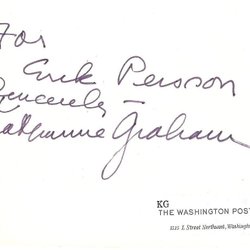 For
Erik Persson
Sincerely –
Katharine Graham
KG
THE WASHINGTON POST
1515 L Street Northwest, Washing